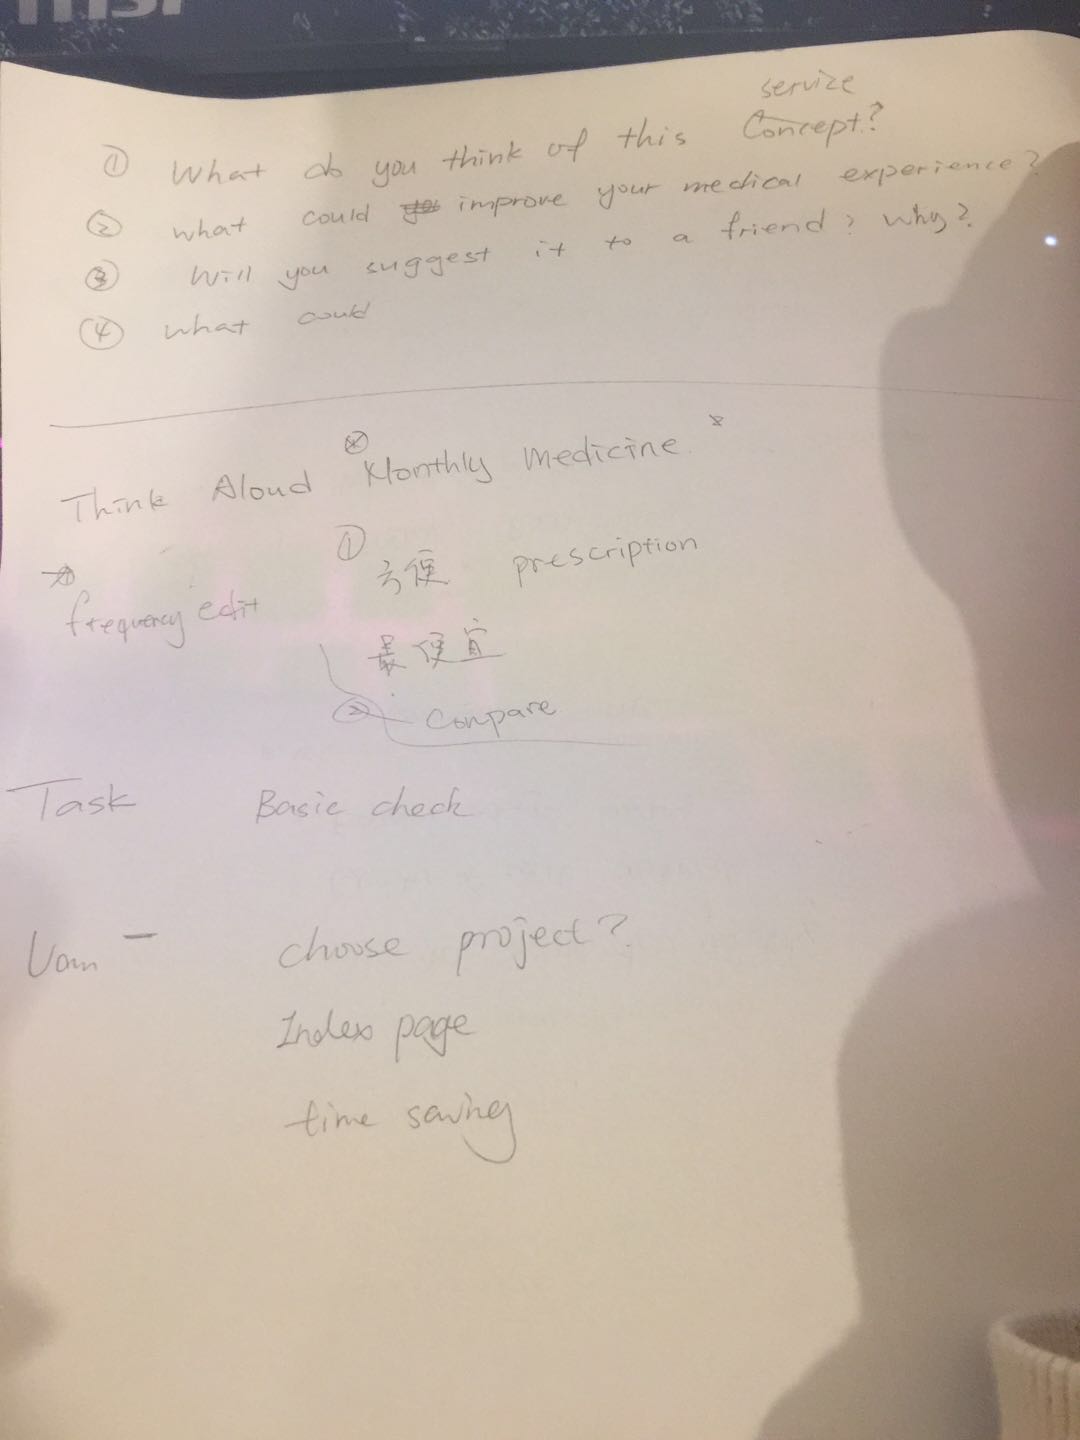 msi
service
① What do you think of this Concept?
② what could improve your medical experience?
③ Will you suggest it to a friend? why?
④ what could
Think Aloud Monthly Medicine
① 方便 prescription
frequency edit
最便宜
② Compare
Task Basic check
choose project?
Index page
time saving